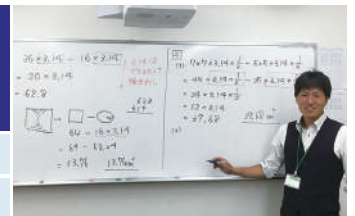 36×3.14 − 16×3.14
= 20×3.14
= 62.8
64 − 16×3.14
= 64 −
= 13.76 13.76cm²
(1) 7×7×3.14×1/2 − 5×5×3.14×1/2
= 49×3.14×1/2 − 25×3.14×1/2
= 24×3.14×1/2
= 12×3.14
= 37.68
(2)